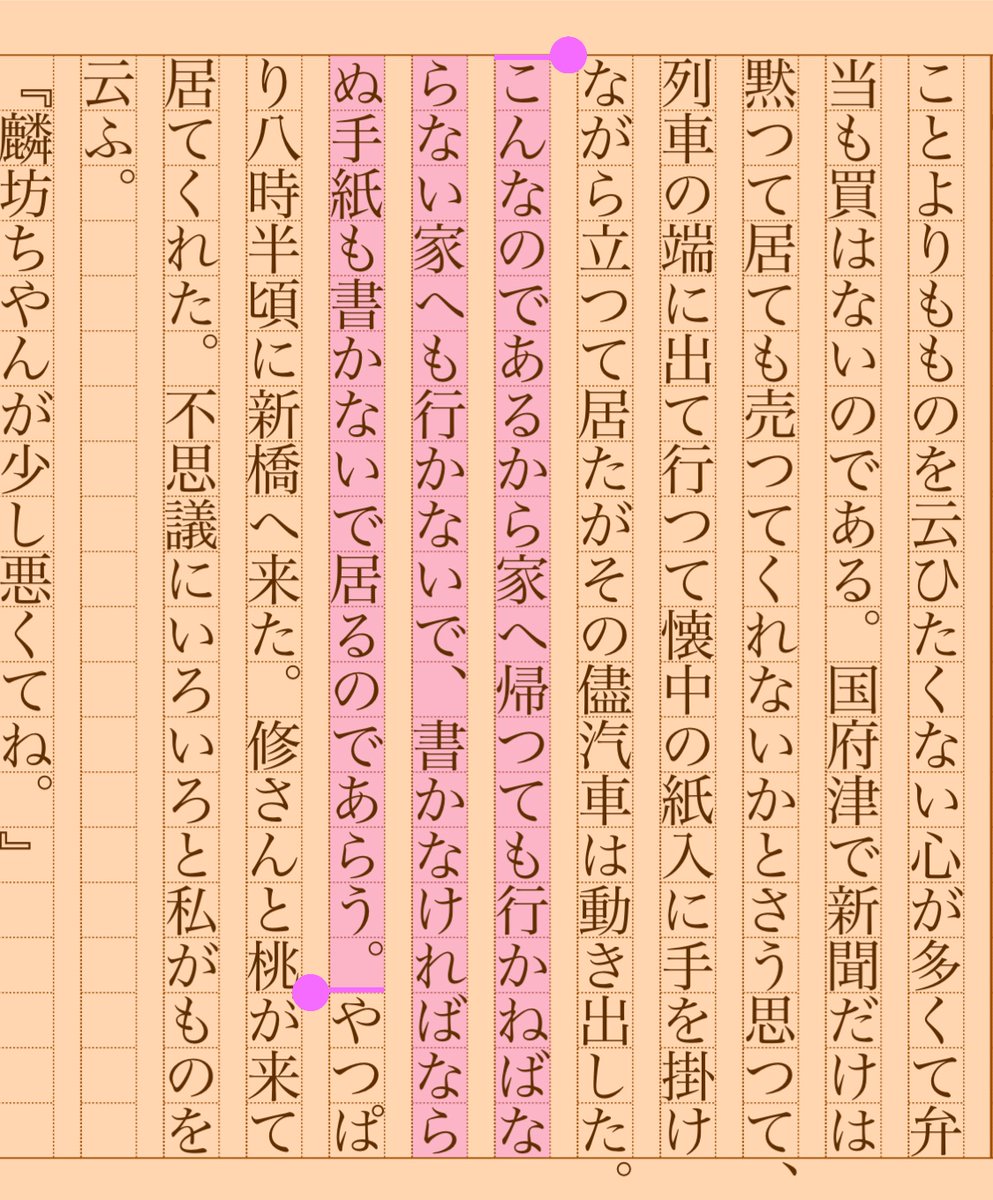 ことよりものを云ひたくない心が多くて弁
当も買はないのである。国府津で新聞だけは
黙つて居ても売つてくれないかとさう思つて、
列車の端に出て行つて懐中の紙入に手を掛け
ながら立つて居たがその儘汽車は動き出した。
こんなのであるから家へ帰つても行かねばな
らない家へも行かないで、書かなければなら
ぬ手紙も書かないで居るのであらう。やつぱ
り八時半頃に新橋へ来た。修さんと桃が来て
居てくれた。不思議にいろいろと私がものを
云ふ。
『麟坊ちやんが少し悪くてね。』